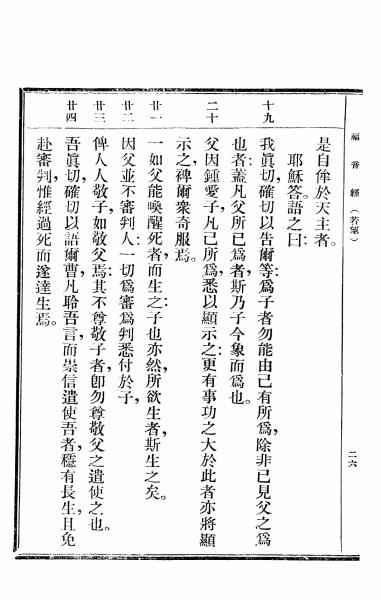 福音經(若望)
二六
是自侔於天主者。
耶穌答語之曰:
十九
我眞切確切以告爾等:爲子者勿能由己有所爲,除非已見父之爲
也者:蓋凡父所已爲者,斯乃子今象而爲也。
二十
父因鍾愛子,凡己所爲,悉以顯示之;更有事功之大於此者亦將顯
示之,俾爾衆奇服焉。
廿一
一如父能喚醒死者,而生之;子也亦然,所欲生者,斯生之矣。
廿二
因父並不審判人:一切爲審爲判悉付於子,
廿三
俾人人敬子,如敬父焉;其不尊敬子者,卽勿尊敬父之遣使之也。
廿四
吾眞切,確切以語爾曹,凡聆吾言,而崇信遣使吾者,穩有長生,且免
赴審判,惟經過死而遂達生焉。